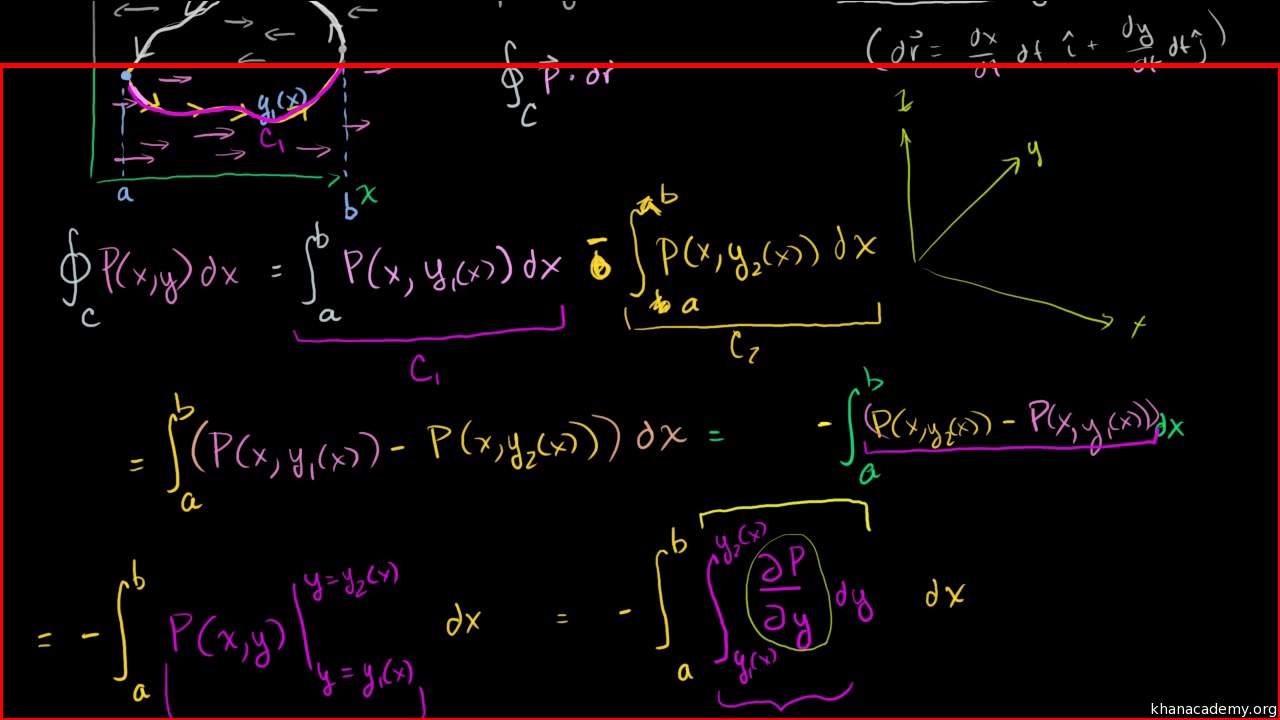 (dr⃗ = dx/dt dt î + dy/dt dt ĵ)
∮_C P⃗ · dr⃗
y₁(x)
C₁
a b x
z y x
∮_C P(x,y) dx = ∫_a^b P(x, y₁(x)) dx - ∫_a^b P(x, y₂(x)) dx
C₁ C₂
= ∫_a^b (P(x, y₁(x)) - P(x, y₂(x))) dx = - ∫_a^b (P(x, y₂(x)) - P(x, y₁(x))) dx
= - ∫_a^b P(x,y) |_{y = y₁(x)}^{y = y₂(x)} dx = - ∫_a^b ∫_{y₁(x)}^{y₂(x)} ∂P/∂y dy dx
khanacademy.org